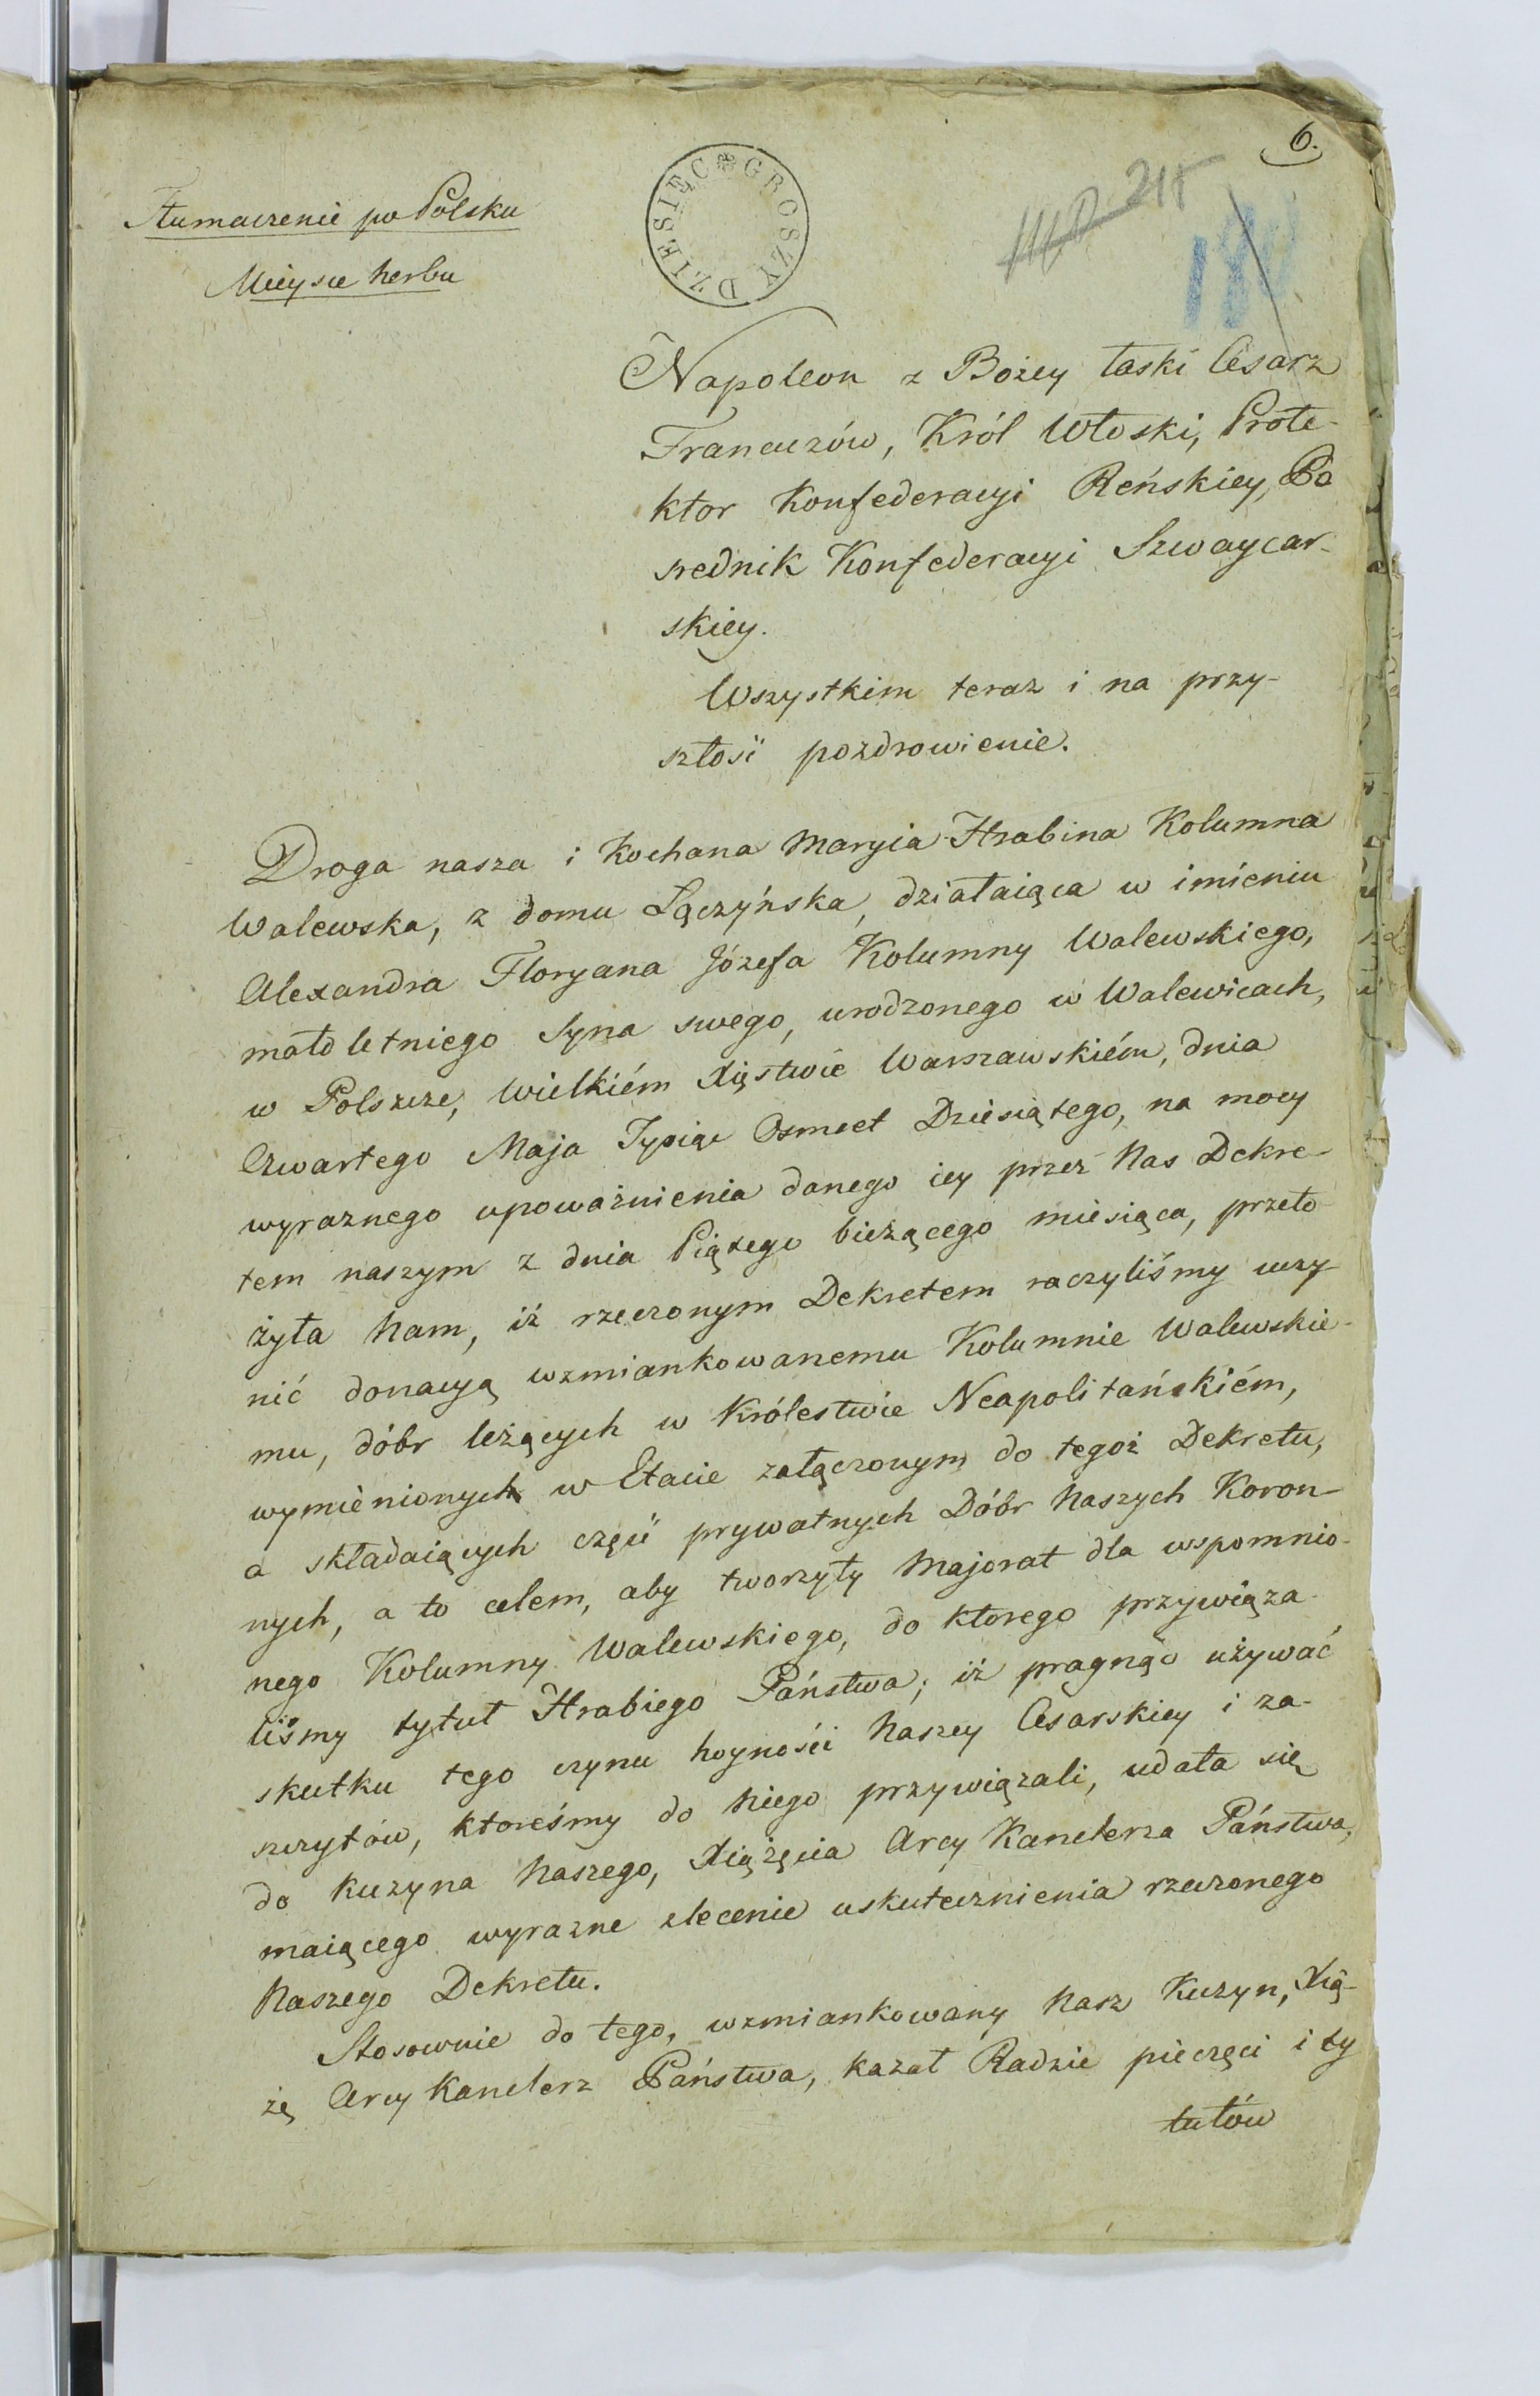 6.
Tłumaczenie po Polsku
Mieysce herbu
DZIESIĘC GROSZY
215
Napoleon z Bożey łaski Cesarz
Francuzów, Król Włoski, Prote-
ktor Konfederacyi Reńskiey, Po
srednik Konfederacyi Szwaycar-
skiey.
Wszystkim teraz i na przy-
szłość pozdrowienie.
Droga nasza i Kochana Maryia Hrabina Kolumna
Walewska, z domu Łączyńska, działaiąca w imieniu
Alexandra Floryana Józefa Kolumny Walewskiego,
małoletniego Syna swego, urodzonego w Walewicach,
w Polszcze, Wielkiém Xięstwie Warszawskiém, dnia
Czwartego Maja Tysiąc Osmset Dziesiątego, na mocy
wyraznego upoważnienia danego iey przez Nas Dekre-
tem naszym z dnia Piątego bieżącego miesiąca, przeło
żyła Nam, iż rzeczonym Dekretem raczyliśmy uczy
nić donacyą wzmiankowanemu Kolumnie Walewskie-
mu, dóbr leżących w Królestwie Neapolitańskiém,
wymienionych w Etacie załączonym do tegoż Dekretu,
a składaiących część prywatnych Dóbr Naszych Koron-
nych, a to celem, aby tworzyły Majorat dla wspomnio-
nego Kolumny Walewskiego, do ktorego przywiąza-
liśmy tytuł Hrabiego Państwa; iż pragnąc używać
skutku tego czynu hoyności Naszey Cesarskiey i za-
szczytów, ktoreśmy do Niego przywiązali, udała się
do Kuzyna Naszego, Xiążęcia Arcy Kanclerza Państwa,
maiącego wyrazne zlecenie uskutecznienia rzeczonego
Naszego Dekretu.
Stosownie do tego, wzmiankowany Nasz Kuzyn, Xią-
żę Arcy Kanclerz Państwa, kazał Radzie pieczęci i ty
tułów